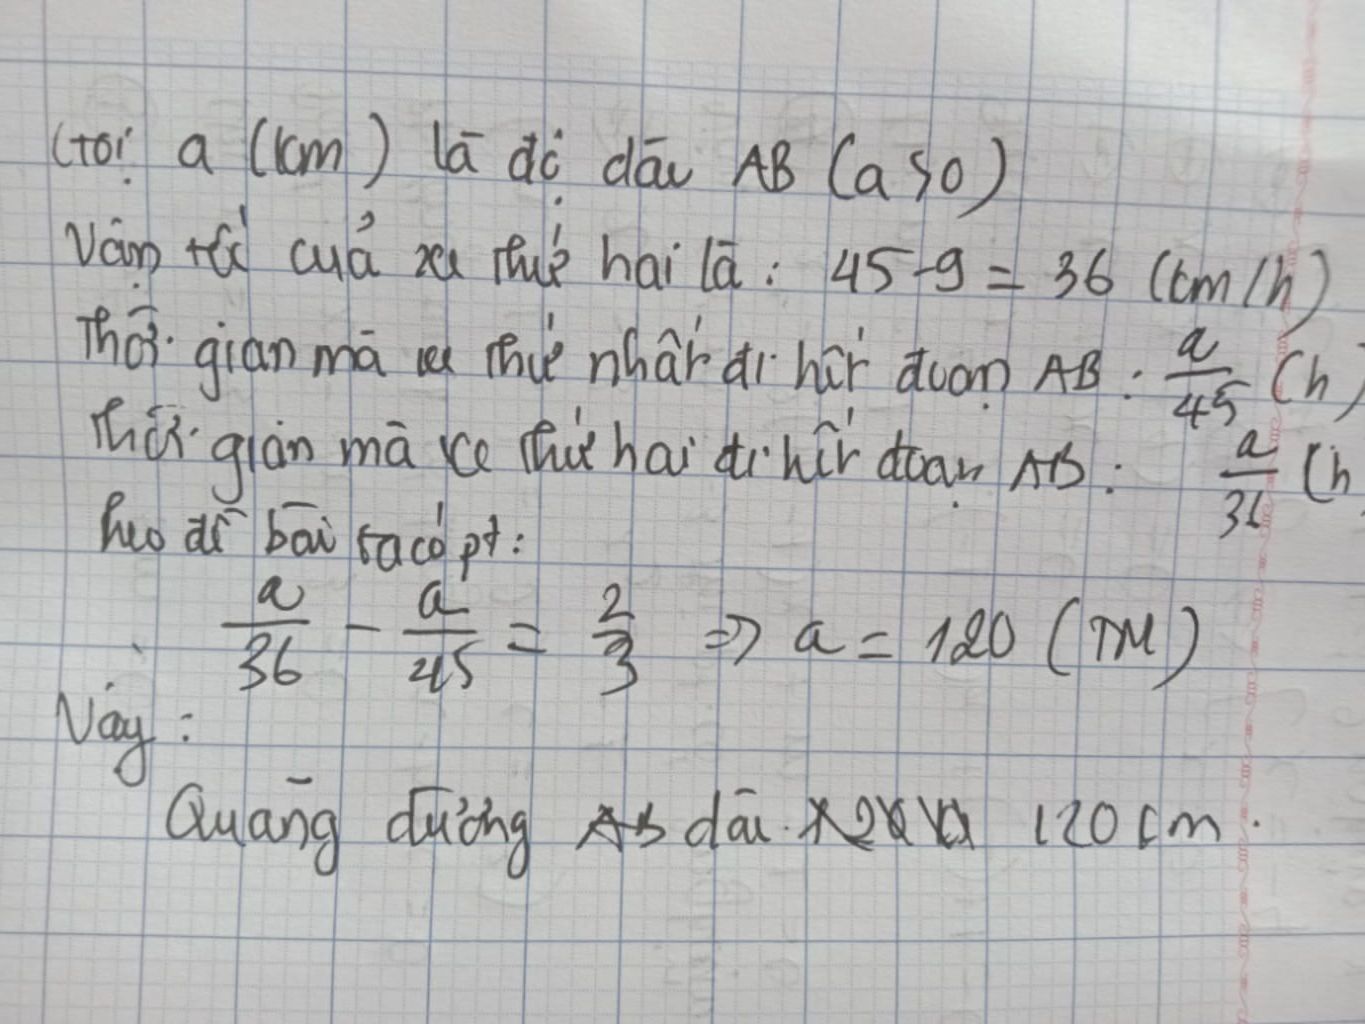 Gọi a (km) là độ dài AB (a > 0)
Vận tốc của xe thứ hai là : 45 - 9 = 36 (km/h)
Thời gian mà xe thứ nhất đi hết đoạn AB : a/45 (h)
Thời gian mà xe thứ hai đi hết đoạn AB : a/36 (h
Theo đề bài ta có pt :
a/36 - a/45 = 2/3 => a = 120 (TM)
Vậy :
Quãng đường AB dài 120 cm.